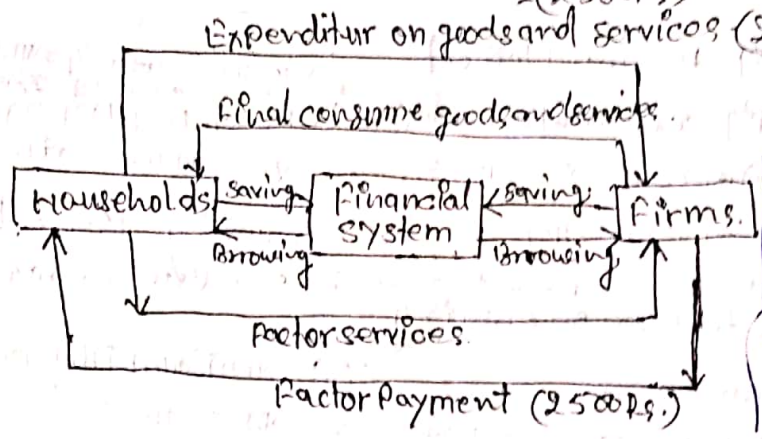 Expenditur on goods and services (
Final consume goods and services.
Households
saving
Financial
system
saving
Firms.
Brrowing
Brrowing
Factor services
Factor Payment (2500Rs.)